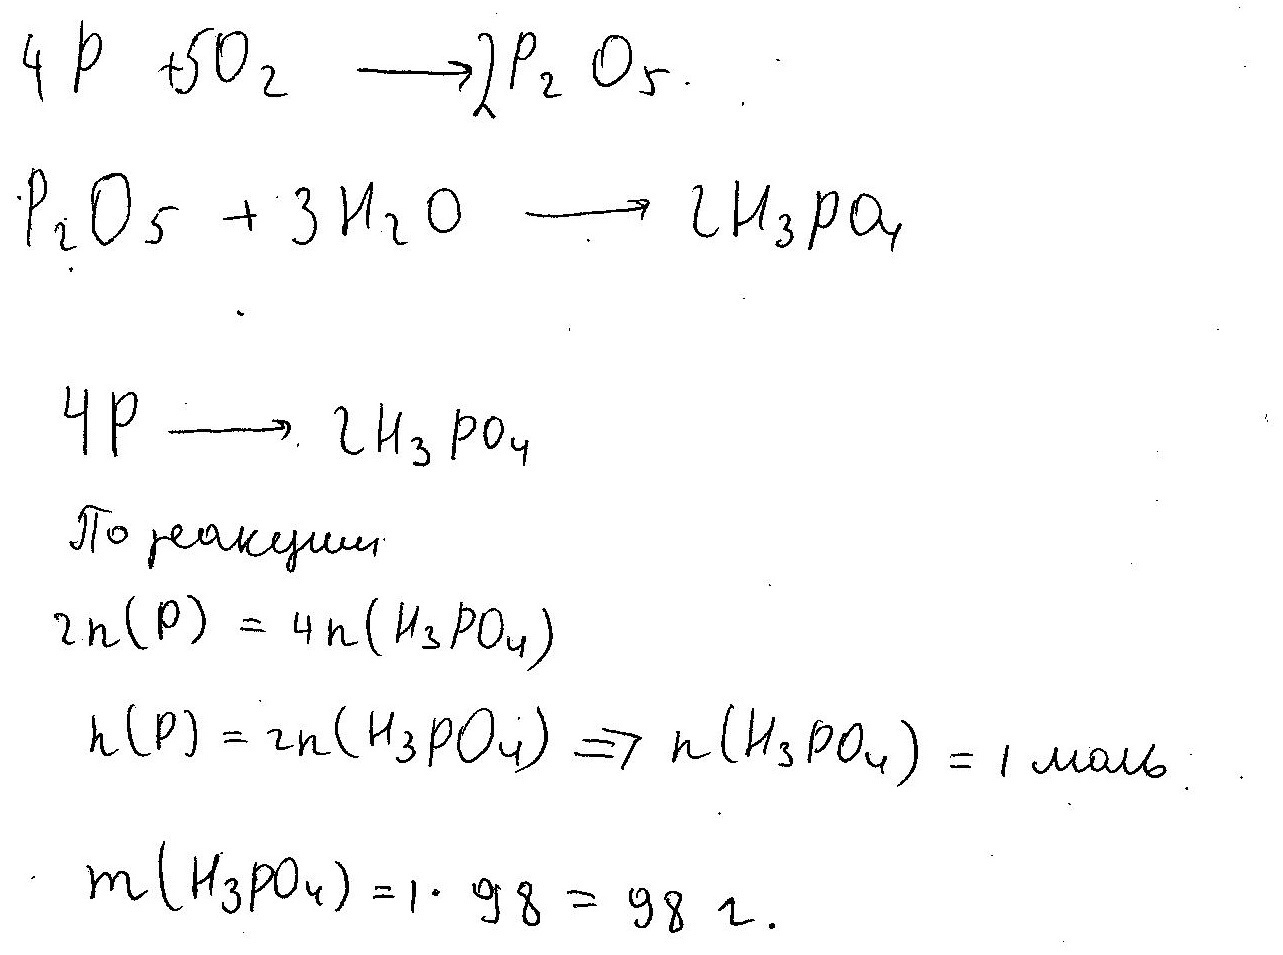 4P +5O₂ ⟶ 2P₂O₅.
P₂O₅ + 3H₂O ⟶ 2H₃PO₄
4P ⟶ 2H₃PO₄
По реакции
2n(P) = 4n(H₃PO₄)
n(P) = 2n(H₃PO₄) ⇒ n(H₃PO₄) = 1 моль.
m(H₃PO₄) = 1 · 98 = 98 г.